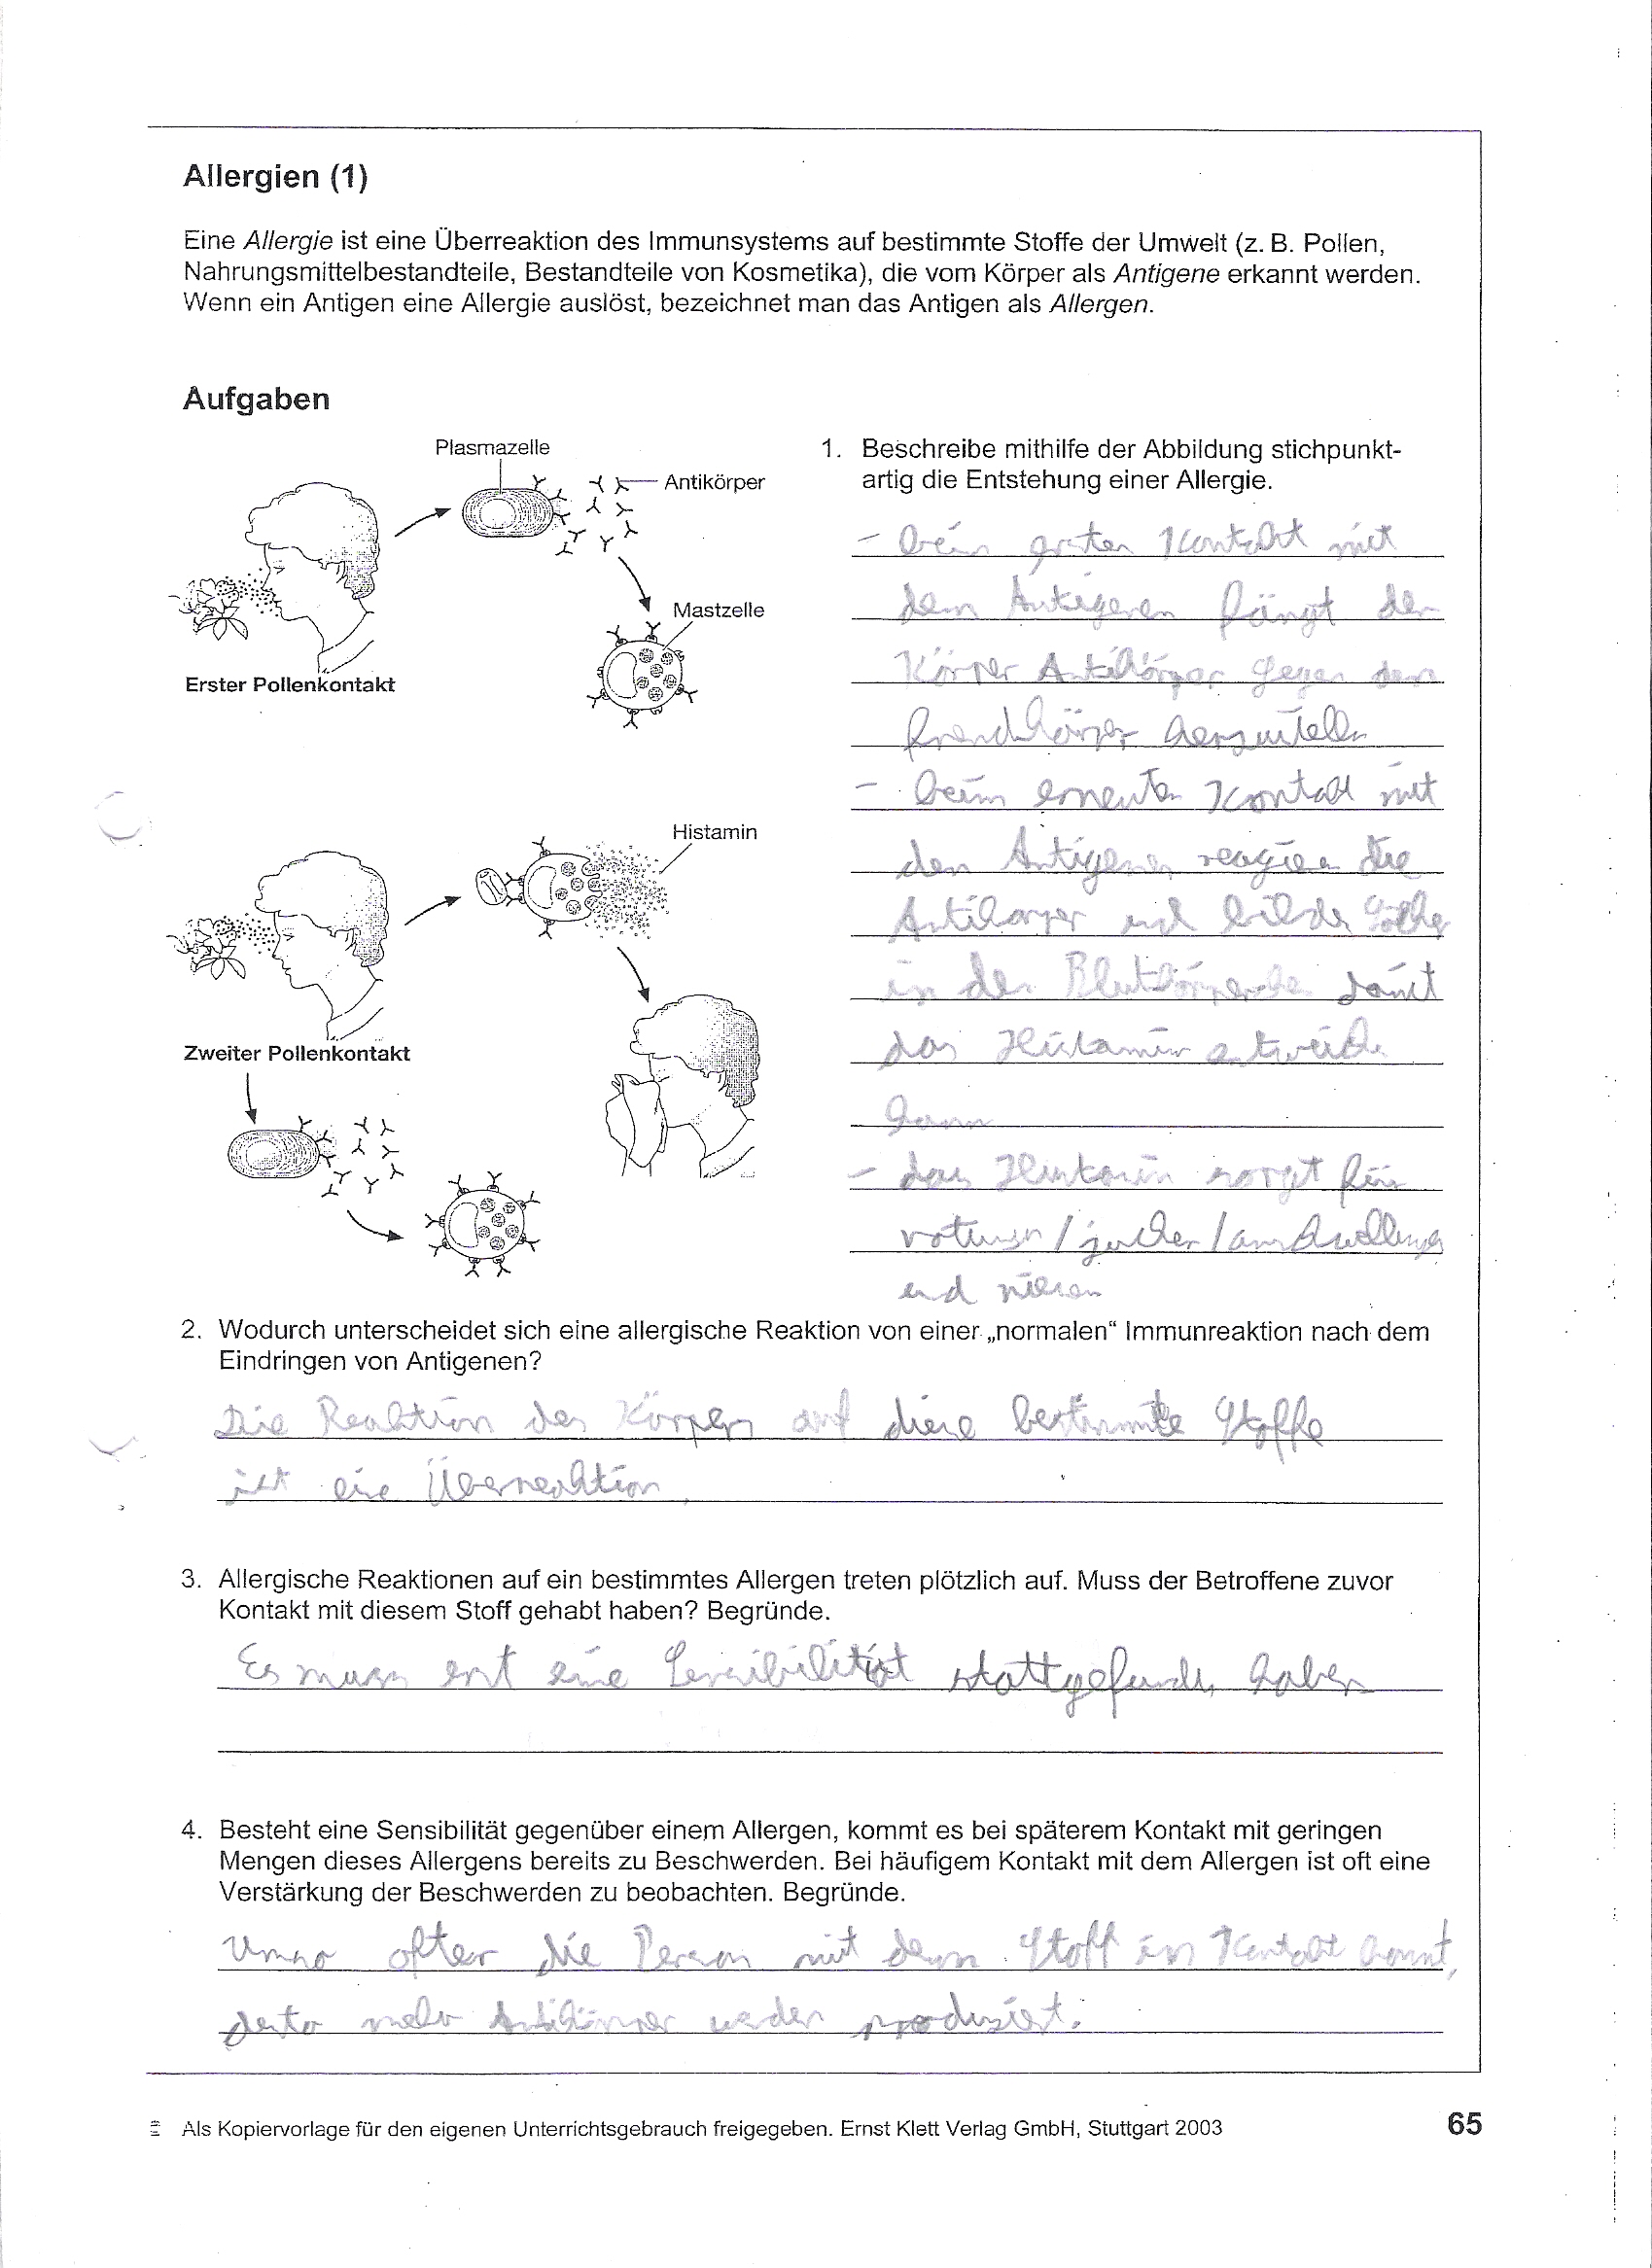 Allergien (1)
Eine Allergie ist eine Überreaktion des Immunsystems auf bestimmte Stoffe der Umwelt (z. B. Pollen,
Nahrungsmittelbestandteile, Bestandteile von Kosmetika), die vom Körper als Antigene erkannt werden.
Wenn ein Antigen eine Allergie auslöst, bezeichnet man das Antigen als Allergen.
Aufgaben
Plasmazelle
Antikörper
Mastzelle
Erster Pollenkontakt
Histamin
Zweiter Pollenkontakt
1. Beschreibe mithilfe der Abbildung stichpunkt-
artig die Entstehung einer Allergie.
- beim ersten Kontakt mit
dem Antigenen fängt der
Körper Antikörper gegen den
fremdkörper herzustellen
- beim erneuten Kontakt mit
den Antigenen reagieren die
Antikörper und bilden
in den Blutkörperchen damit
das Histamin entweichen
kann
- das Histamin sorgt für
rötungen / jucken / anschwellungen
und niesen
2. Wodurch unterscheidet sich eine allergische Reaktion von einer „normalen“ Immunreaktion nach dem
Eindringen von Antigenen?
Die Reaktion des Körpers auf diese bestimmte Stoffe
ist eine Überreaktion
3. Allergische Reaktionen auf ein bestimmtes Allergen treten plötzlich auf. Muss der Betroffene zuvor
Kontakt mit diesem Stoff gehabt haben? Begründe.
Es muss erst eine Sensibilität stattgefunden haben
4. Besteht eine Sensibilität gegenüber einem Allergen, kommt es bei späterem Kontakt mit geringen
Mengen dieses Allergens bereits zu Beschwerden. Bei häufigem Kontakt mit dem Allergen ist oft eine
Verstärkung der Beschwerden zu beobachten. Begründe.
Umso öfter die Person mit dem Stoff in Kontakt kommt,
desto mehr Antikörper werden produziert.
Als Kopiervorlage für den eigenen Unterrichtsgebrauch freigegeben. Ernst Klett Verlag GmbH, Stuttgart 2003
65